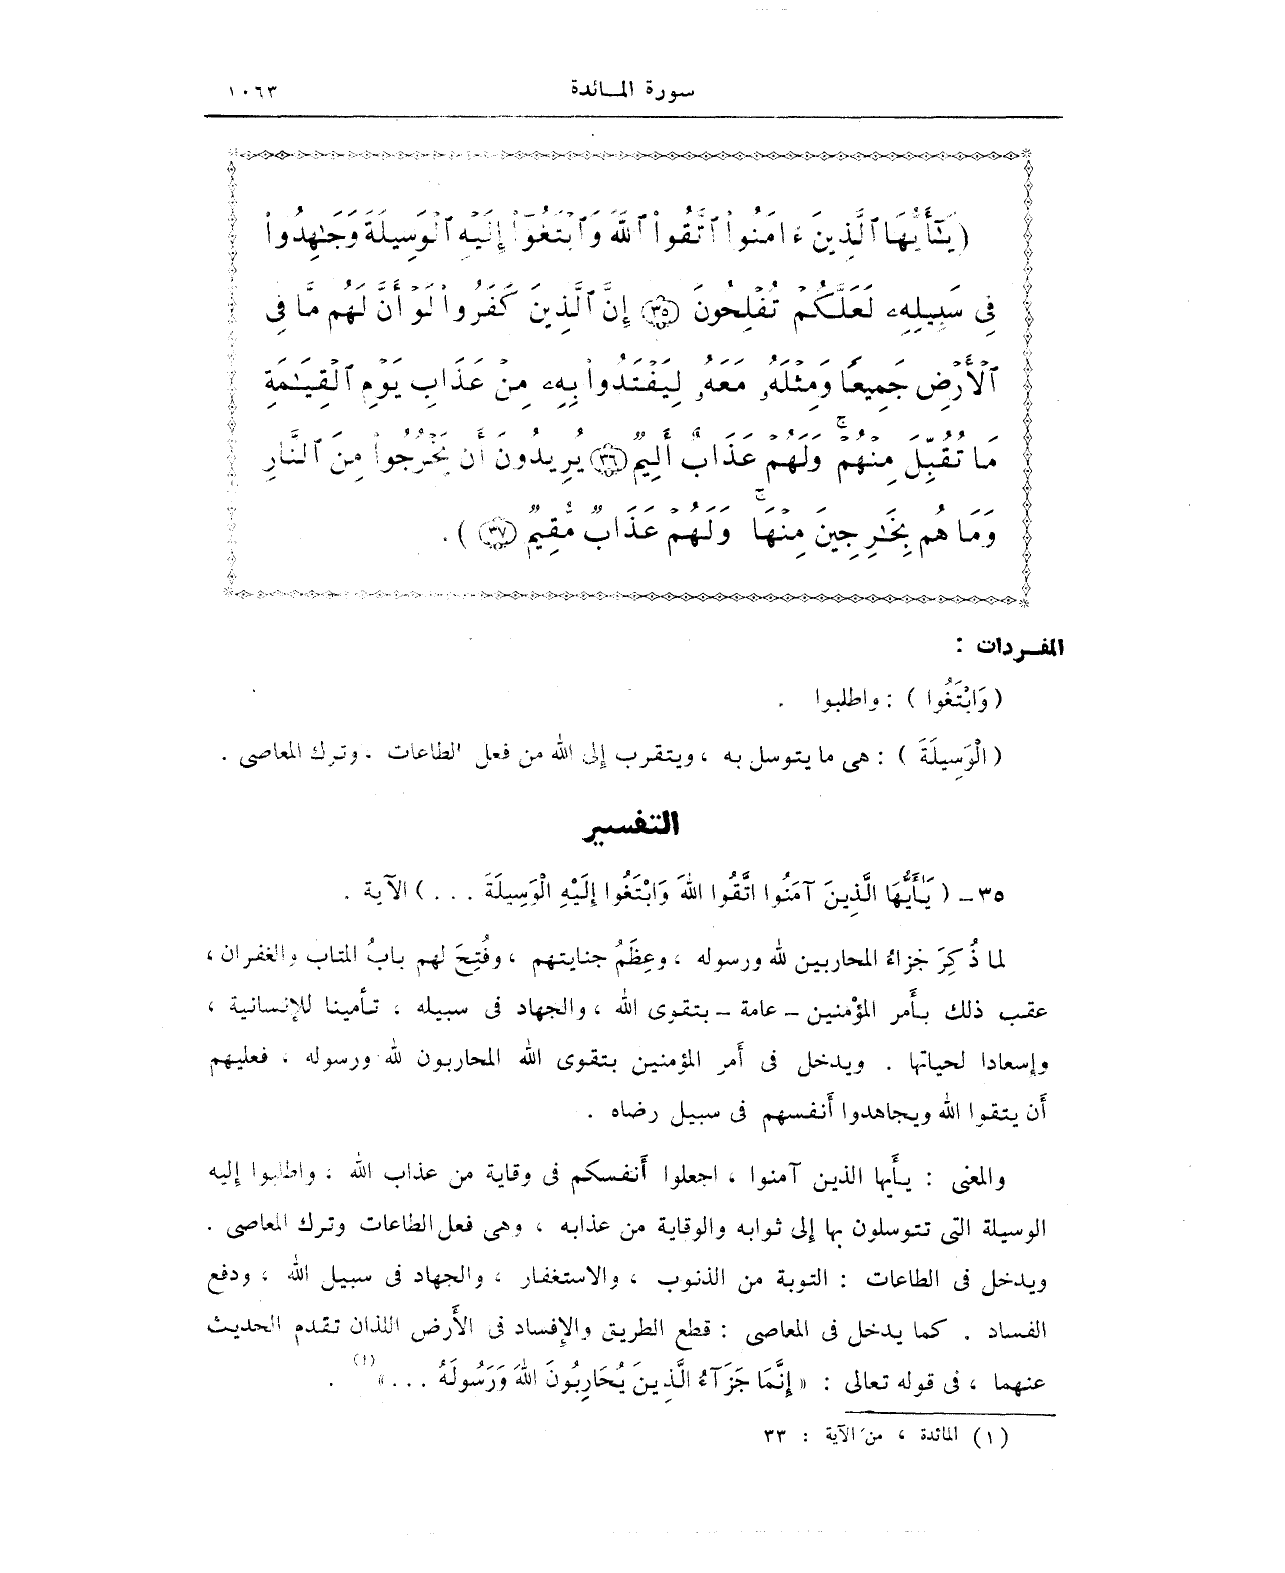 سورة المائدة ١٠٦٣
(يَٰٓأَيُّهَا ٱلَّذِينَ ءَامَنُوا۟ ٱتَّقُوا۟ ٱللَّهَ وَٱبْتَغُوٓا۟ إِلَيْهِ ٱلْوَسِيلَةَ وَجَٰهِدُوا۟
فِى سَبِيلِهِۦ لَعَلَّكُمْ تُفْلِحُونَ ٣٥ إِنَّ ٱلَّذِينَ كَفَرُوا۟ لَوْ أَنَّ لَهُم مَّا فِى
ٱلْأَرْضِ جَمِيعًا وَمِثْلَهُۥ مَعَهُۥ لِيَفْتَدُوا۟ بِهِۦ مِنْ عَذَابِ يَوْمِ ٱلْقِيَٰمَةِ
مَا تُقُبِّلَ مِنْهُمْ ۖ وَلَهُمْ عَذَابٌ أَلِيمٌ ٣٦ يُرِيدُونَ أَن يَخْرُجُوا۟ مِنَ ٱلنَّارِ
وَمَا هُم بِخَٰرِجِينَ مِنْهَا ۖ وَلَهُمْ عَذَابٌ مُّقِيمٌ ٣٧ ) .
المفردات :
( وَابْتَغُوا ) : واطلبوا .
( الْوَسِيلَةَ ) : هى ما يتوسل به ، ويتقرب إلى الله من فعل الطاعات ، وترك المعاصى .
التفسير
٣٥ ـ ( يَأَيُّهَا الَّذِينَ آمَنُوا اتَّقُوا اللهَ وَابْتَغُوا إِلَيْهِ الْوَسِيلَةَ . . . ) الآية .
لما ذُكِرَ جزاءُ المحاربين لله ورسوله ، وعِظَمُ جنايتهم ، وفُتِحَ لهم بابُ المتاب والغفران ،
عقب ذلك بأَمر المؤْمنين ـ عامة ـ بتقوى الله ، والجهاد فى سبيله ، تأمينا للإنسانية ،
وإسعادا لحياتها . ويدخل فى أَمر المؤمنين بتقوى الله المحاربون لله ورسوله ، فعليهم
أَن يتقوا الله ويجاهدوا أَنفسهم فى سبيل رضاه .
والمعنى : يأَيها الذين آمنوا ، اجعلوا أَنفسكم فى وقاية من عذاب الله ، واطلبوا إليه
الوسيلة التى تتوسلون بها إلى ثوابه والوقاية من عذابه ، وهى فعل الطاعات وترك المعاصى .
ويدخل فى الطاعات : التوبة من الذنوب ، والاستغفار ، والجهاد فى سبيل الله ، ودفع
الفساد . كما يدخل فى المعاصى : قطع الطريق والإفساد فى الأَرض اللذان تقدم الحديث
عنهما ، فى قوله تعالى : « إِنَّمَا جَزَآءُ الَّذِينَ يُحَارِبُونَ اللهَ وَرَسُولَهُ . . . » (١) .
(١) المائدة ، من الآية : ٣٣